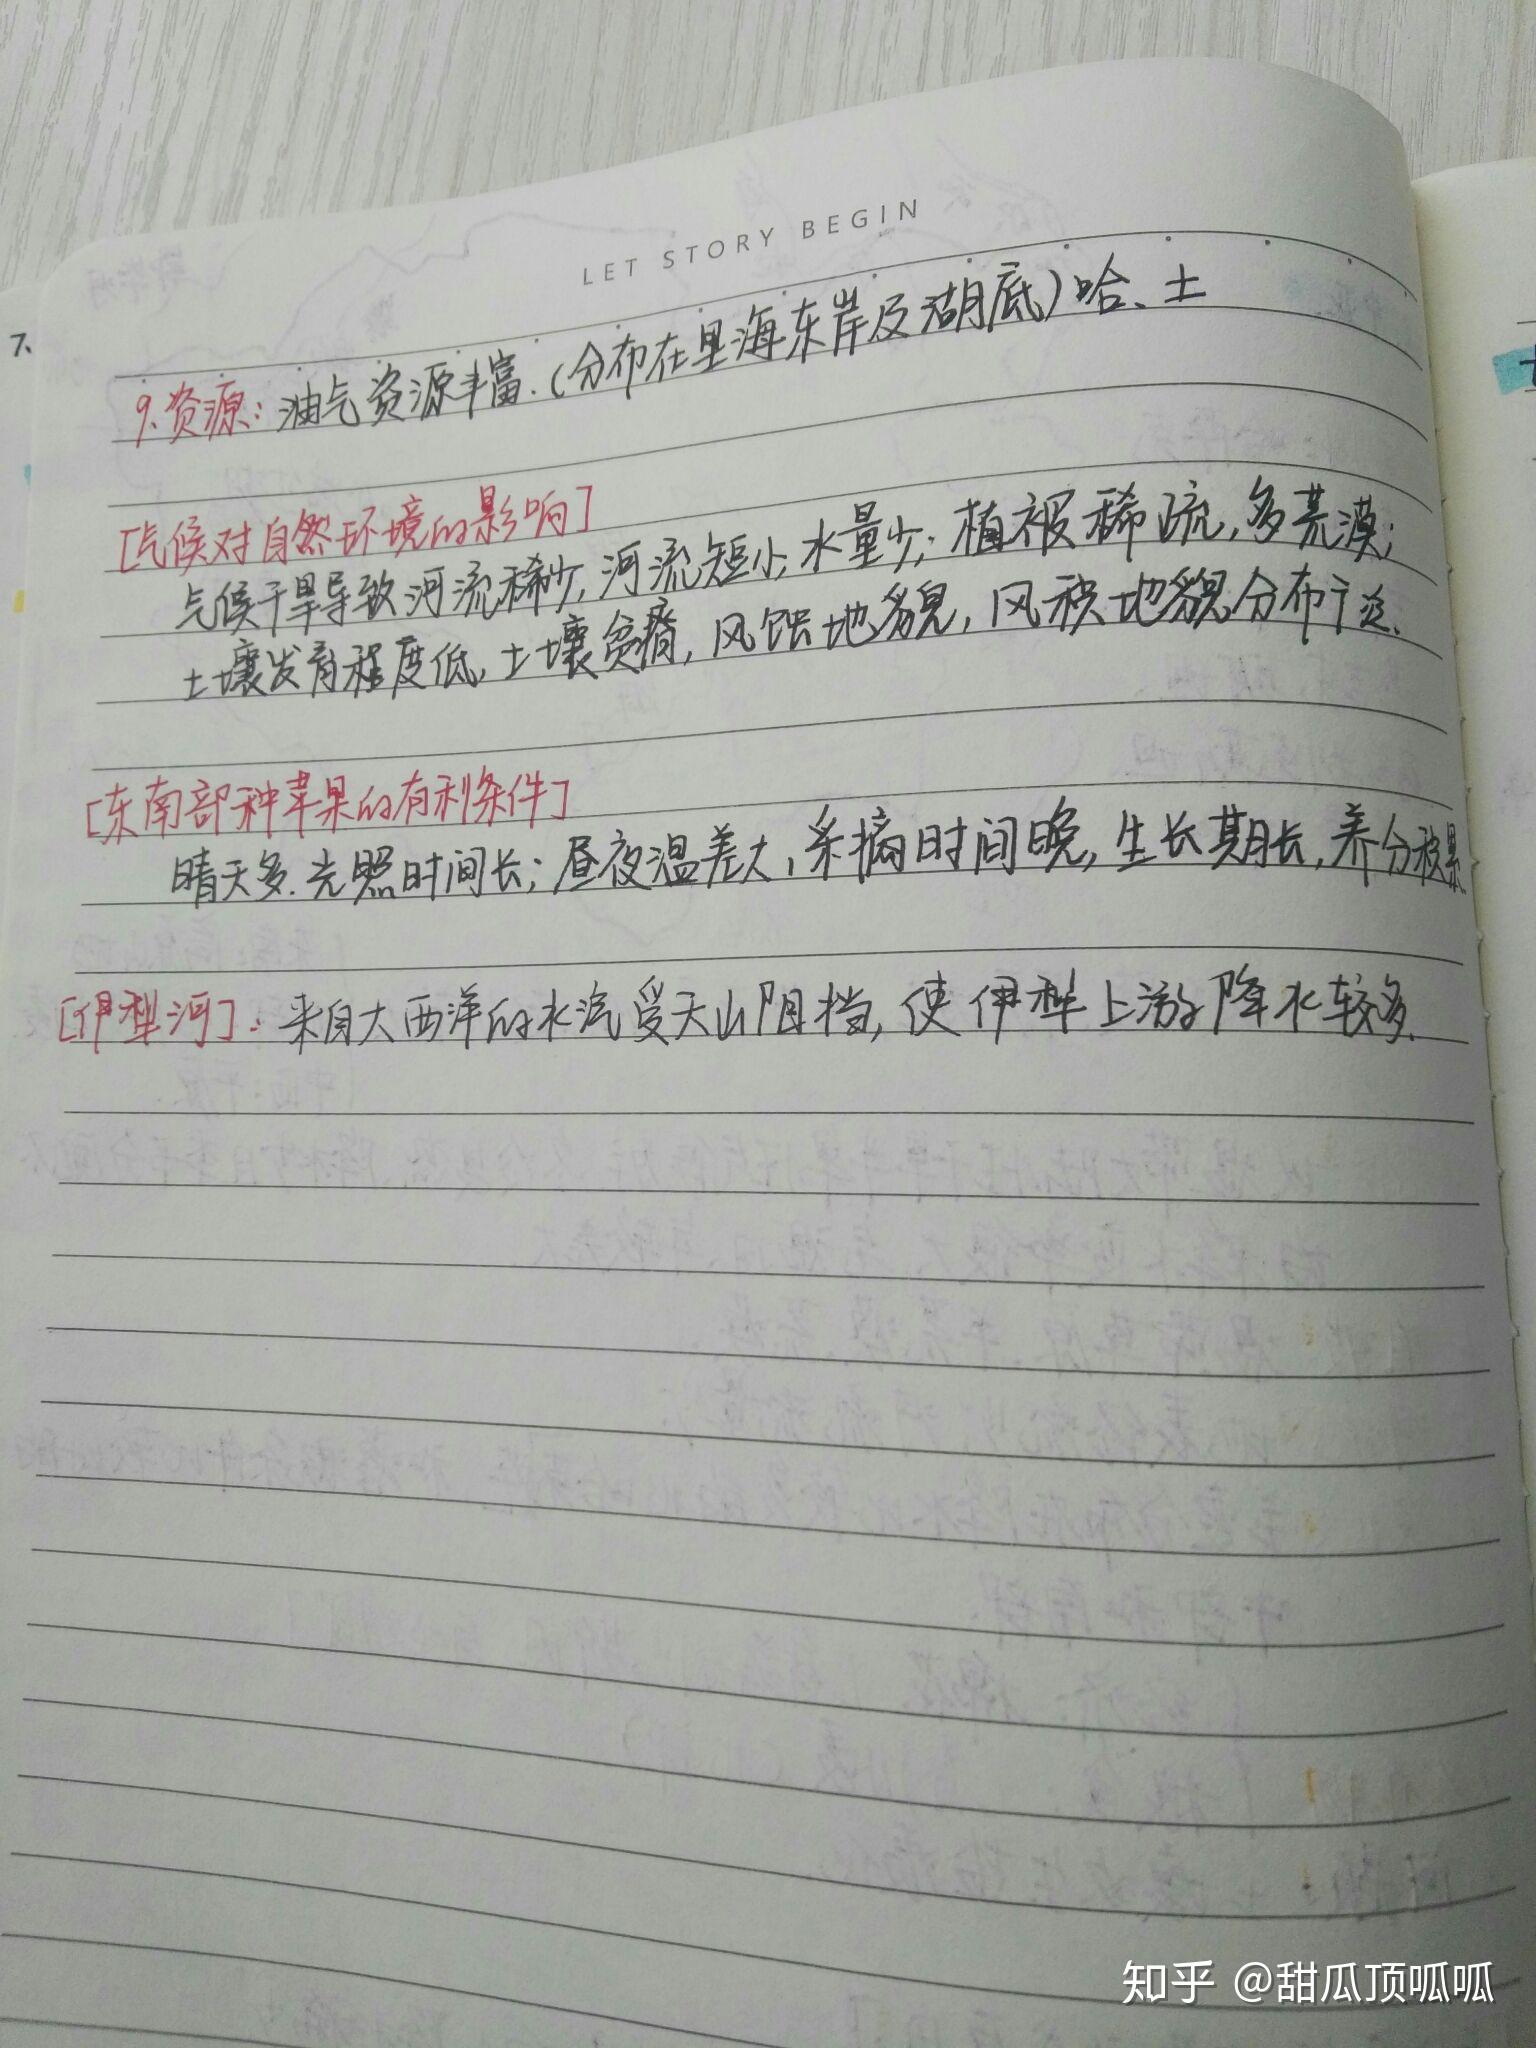 LET STORY BEGIN
7、
9、资源：油气资源丰富.（分布在里海东岸及湖底）哈、土
[气候对自然环境的影响]
气候干旱导致河流稀少,河流短小,水量少;植被稀疏,多荒漠;
土壤发育程度低,土壤贫瘠,风蚀地貌,风积地貌分布广泛.
[东南部种苹果的有利条件]
晴天多.光照时间长;昼夜温差大,采摘时间晚,生长期长,养分积累
[伊犁河]：来自大西洋的水汽受天山阻挡,使伊犁上游降水较多.
知乎 @甜瓜顶呱呱